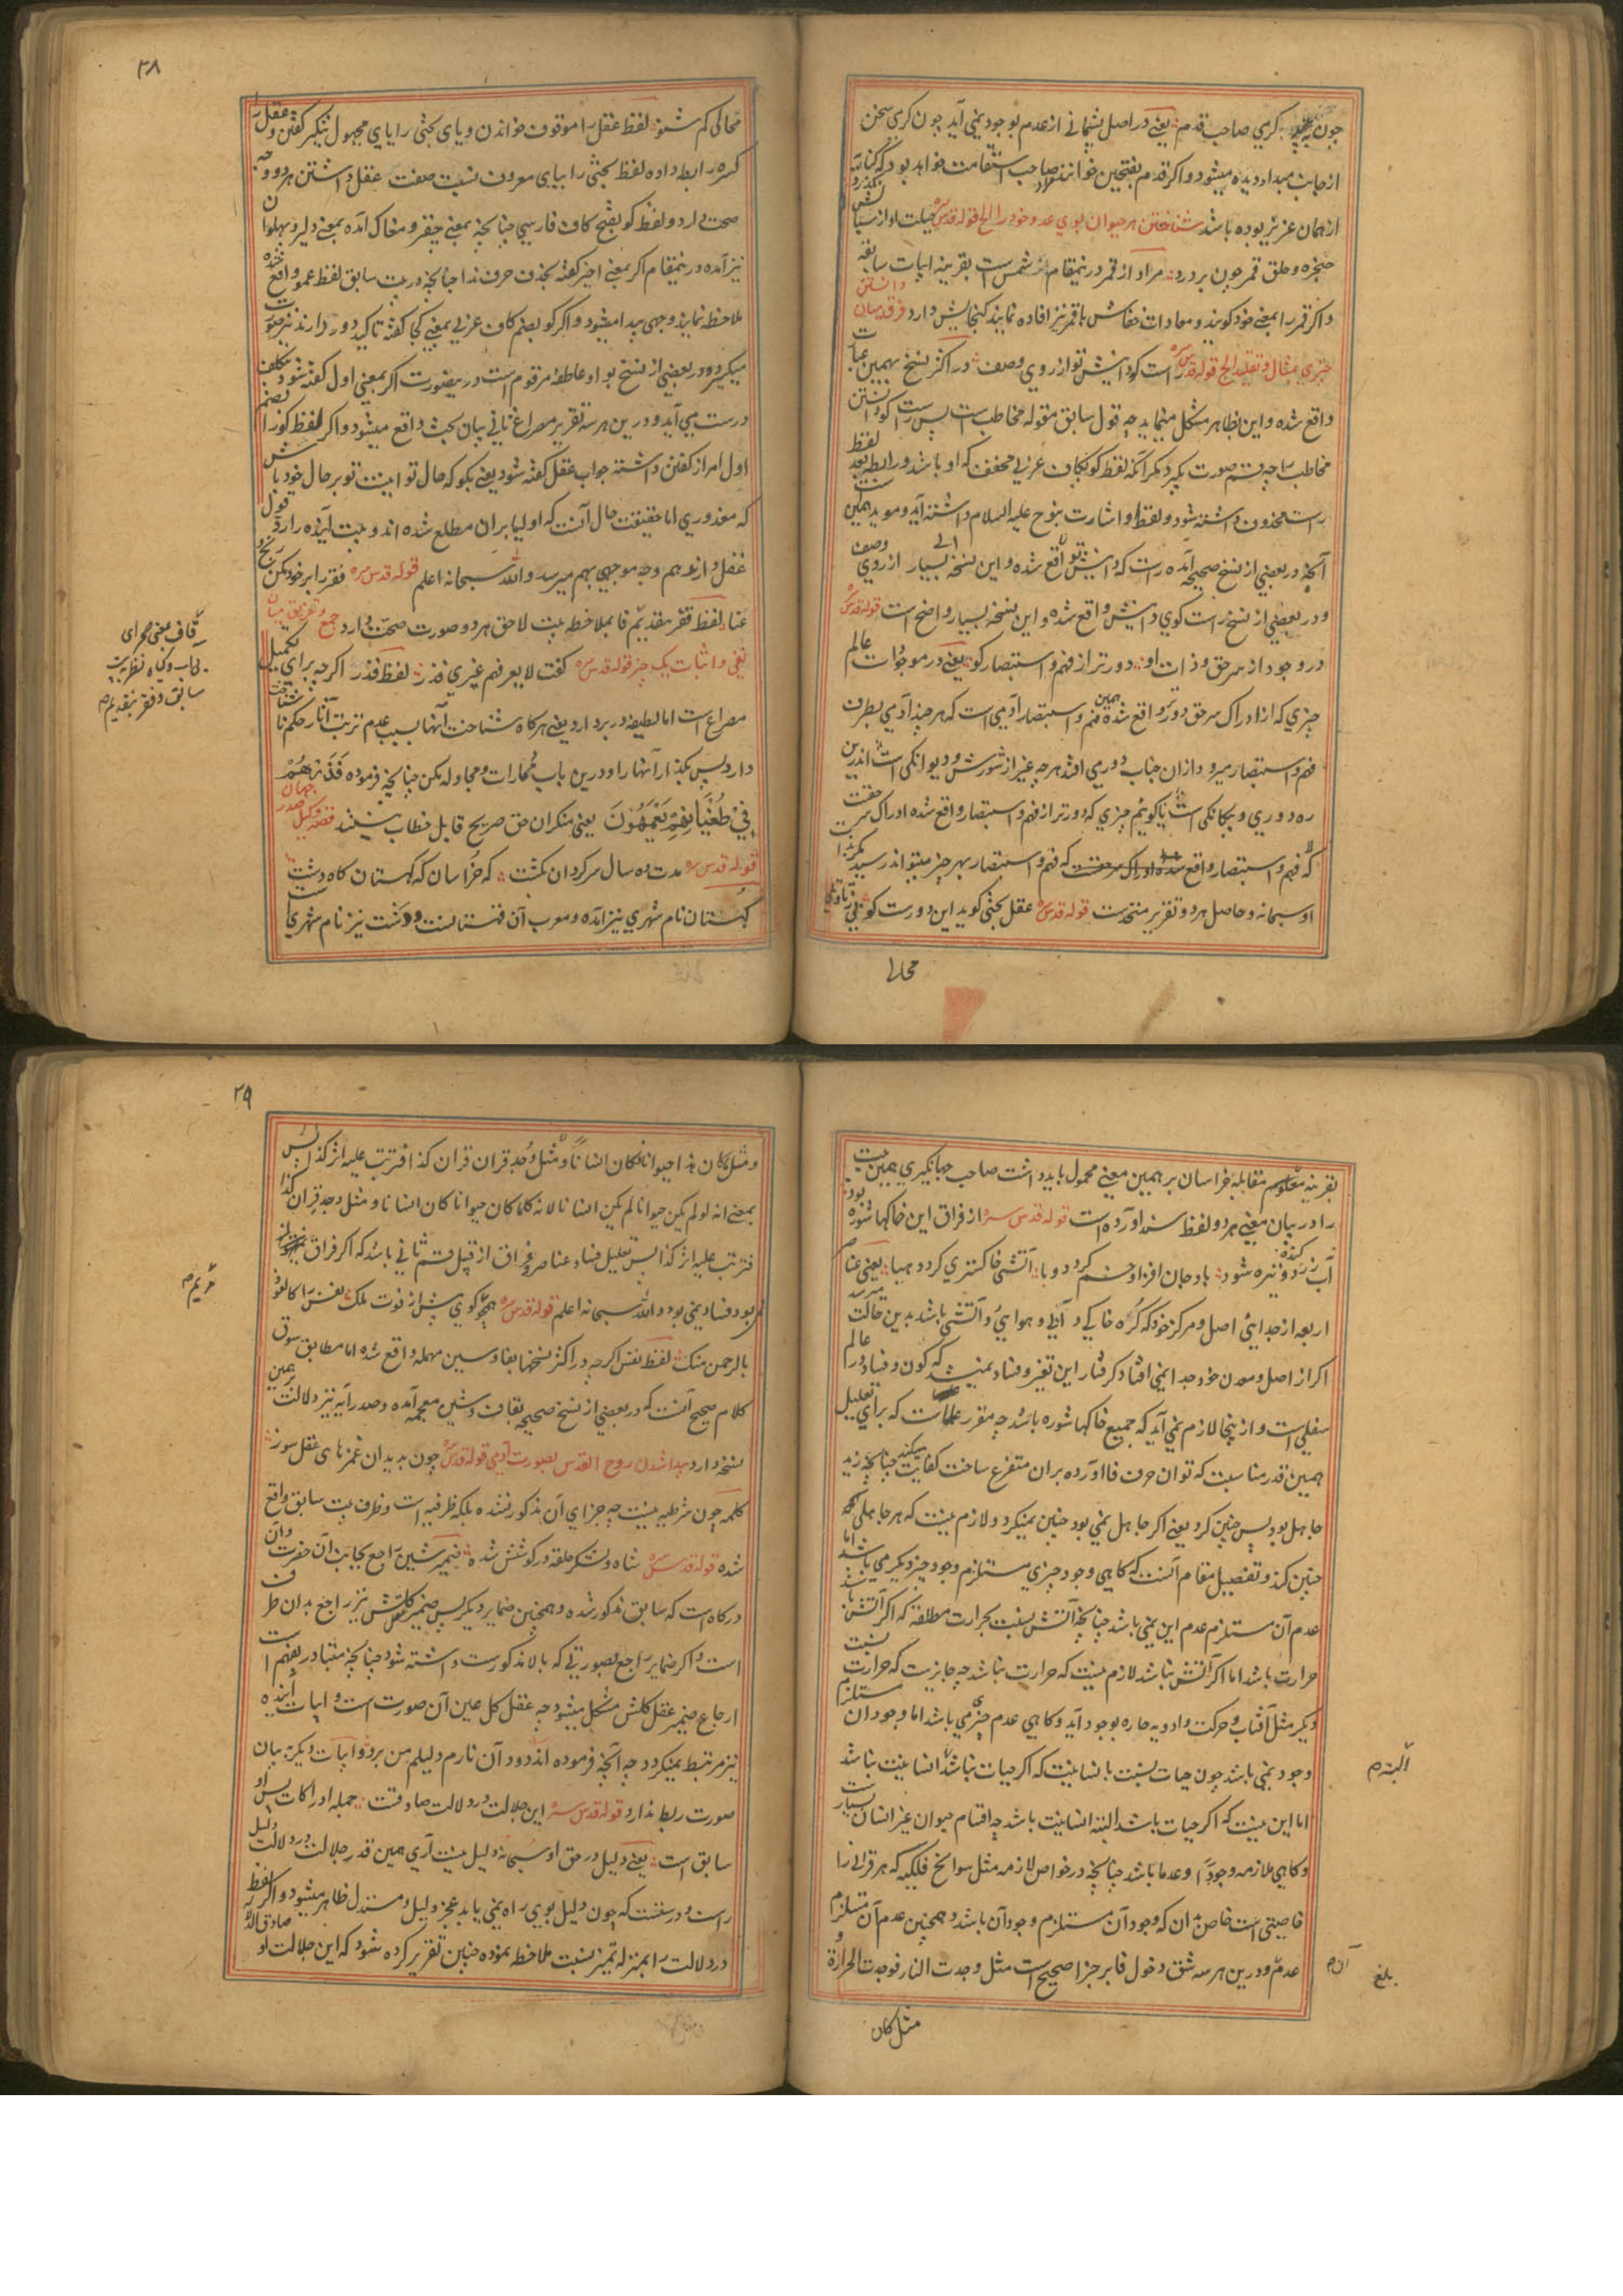 چون کری صاحب قدم یعنی در اصل پشیمانی از عدم بوجود نمی آید چون کری سخن
از جانب مبدا دیده میشود و اگر قدم بفتحتین خوانند صاحب استقامت خواهد بود که کنایة
از همان عزیز بوده باشد شناختن هر حیوان بوی عدو خود را الخ قوله قدس سره
حنجره و حلق قمر چون بر درد مراد از قمر درینمقام شمس است بقرینه ابیات سابقه
و اگر قمر را بمعنی خود گویند و معادات خفاش با قمر نیز افاده نمایند گنجایش دارد فرق میان دانستن
چیزی بمثال و تقلید الخ قوله قدس سره راست گو دانیش تو از روی وصف در اکثر نسخ بهمین عبارت
واقع شده و این بظاهر مشکل مینماید چه قول سابق مقوله مخاطب است پس راست گو دانستن
مخاطب را چه قسم صورت بگیرد مگر آنکه لفظ گو بکاف عربی مخفف که او باشد و رابطه بعد لفظ
راست محذوف داشته شود و لفظ او اشارت بنوح علیه السلام داشته آید و موید همین است
آنکه در بعضی از نسخ صحیحه آمده راست که دانیش تو واقع شده و این نسخه بسیار از روی وصف
و در بعضی از نسخ راست گوی دانیش واقع شده و این نسخه بسیار واضح است قوله قدس سره
در وجود از سر حق و ذات او دورتر از فهم و استبصار کو یعنی در موجودات عالم
چیزی که از ادراک سر حق دورتر واقع شده همین فهم و استبصار آدمی است که هر چند آدمی بطرف
فهم و استبصار میرود از ان جناب دور می افتد هر چه غیر از شورش و دیوانگی است اندرین
ره دوری و بیگانگی است یا گوئیم چیزی که دورتر از فهم و استبصار واقع شده ادراک سر حقست
که فهم و استبصار بهر چیز میتواند رسید مگر بذات
او سبحانه و حاصل هر دو تقریر متحدست قوله قدس سره عقل بحثی گوید این دورست و گو بی ز تاویلی
محالی
۲۸
محالی کم شنو لفظ عقل را موقوف خواندن و یای بحثی را یای مجهول تنکیر گفتن و عقل را
کسره رابطه داده لفظ بحثی را بیای معروف نسبت صفت عقل داشتن هر دو وجه
صحت دارد و لفظ گو بفتح کاف فارسی چنانچه بمعنی حفر و مغاک آمده بمعنی دلیر و پهلوان
نیز آمده درینمقام اگر بمعنی اخیر گفته بحذف حرف ندا چنانچه در بیت سابق لفظ عمو واقع شده
ملاحظه نمایند وجهی پیدا میشود و اگر کو بضم کاف عربی بمعنی کجا گفته تاکید دور دارند نیز صورت
میگیرد و در بعضی از نسخ بواو عاطفه مرقوم است درینصورت اگر بمعنی اول گفته شود بتکلف
درست می آید و درین هر سه تقریر مصراع ثانی بیان بحث واقع میشود و اگر لفظ گو را بضم
اول امر از گفتن داشته جواب عقل گفته شود یعنی بگو که حال تو اینست تو بر حال خود باش
که معذوری اما حقیقت حال آنست که اولیا بران مطلع شده اند و بیت آینده را رد قول
عقل دارند هم وجه موجهی بهم میرسد والله سبحانه اعلم قوله قدس سره فقر را بر خود مکن رنج و
عنا لفظ فقر بتقدیم قا بملاحظه بیت لاحق هر دو صورت صحت دارد جمع و تفریق میان
نفی و اثبات یک چیز قوله قدس سره گفت لا یعرفهم غیری فذر لفظ فذر اگرچه برای تکمیل
مصراع است اما لطیفه در بر دارد یعنی هر گاه شناخت آنها بسبب عدم ترتب آثار حکم ناشناخت
دارد پس بگذار آنها را و درین باب ممارات و مجاوله مکن چنانچه فرموده فذرهم
فی طغیانهم یعمهون یعنی منکران حق صریح قابل خطاب نیستند قصه وکیل صدر جهان
قوله قدس سره مدت ده سال سرگردان بگشت که خراسان که کهستان گاه دشت
کهستان نام شهری نیز آمده و معرب آن قهستانست و دشت نیز نام شهری است
قاف بمعنی صحرای
بی آب و گیاه نظر به بیت
سابق و فقر بتقدیم
بقرینه مقابله خراسان بر همین معنی محمول باید داشت صاحب جهانگیری همین بیت
را در بیان معنی هر دو لفظ سند آورده است قوله قدس سره از فراق این خاکها شوره بود
آب زرد و گنده و تیره شود باد جان افزا وخم گردد وبا آتشی خاکستری گردد هبا یعنی عناصر
اربعه از جدائی اصل و مرکز خود که کره خاکی و آبی و هوایی و آتشی باشد بدین حالت میرسد
اگر از اصل و معدن خود جدا نمی افتاد گرفتار این تغیر و فساد نمیشد که کون و فساد در عالم
سفلی است و از ینجا لازم نمی آید که جمیع خاکها شوره باشد چه مقرر علماست که برای تعلیل
همین قدر مناسبت که توان حرف فا آورده بران متفرع ساخت کفایت میکند چنانچه زید
جاهل بود پس چنین کرد یعنی اگر جاهل نمی بود چنین نمیکرد و لازم نیست که هر جاهلی که
چنین کند و تفصیل مقام آنست که گاهی وجود چیزی مستلزم وجود چیز دیگر می باشد اما
عدم آن مستلزم عدم این نمی باشد چنانچه آتش نسبت بحرارت مطلقه که اگر آتش باشد
حرارت باشد اما اگر آتش نباشد لازم نیست که حرارت نباشد چه جایز است که حرارت نسبت
دیگر مثل آفتاب و حرکت و ادویه حاره بوجود آید و گاهی عدم چیزی می باشد اما وجود آن مستلزم
وجود نمی باشد چون حیات نسبت بانسانیت که اگر حیات نباشد انسانیت نباشد
اما این نیست که اگر حیات باشد البته انسانیت باشد چه اقسام حیوان غیر انسان بسیار است
و گاهی ملازمه وجودا و عدما باشد چنانچه در خواص لازمه مثل سوانح فلکیه که هر قرانی را
خاصیتی است خاص بدان که وجود آن مستلزم وجود آن باشد و همچنین عدم آن مستلزم
عدم و درین هر سه شق دخول فا بر جزا صحیح است مثل وجدت النار فوجدت الحرارة و
البته
بلغ
مثل کان
۲۹
و مثل کان هذا حیوانا فکان انسانا و مثل وجد قران قران کذا فترتب علیه اثر کذا پس
بمعنی انه لو لم یکن حیوانا لم یکن انسانا لانه کلما کان حیوانا کان انسانا و مثل وجد قران کذا
فترتب علیه اثر کذا پس تعلیل فساد عناصر بفراق از قبیل قسم ثانی باشد که اگر فراق
نمی بود فساد نمی بود والله سبحانه اعلم قوله قدس سره همچو گوی پیش از فوت ملک نفس را کالعوذ
بالرحمن منک لفظ نفس اگرچه در اکثر نسخها بفا و سین مهمله واقع شده اما مطابق سوق
کلام صحیح آنست که در بعضی از نسخ صحیحه بقاف و شین معجمه آمده و صدر آیه نیز دلالت بر همین
نسخه دارد پیدا شدن روح القدس بصورت آدمی قوله قدس سره چون بدید آن غمزهای عقل سوز
کلمه چون شرطیه نیست چه جزای آن مذکور نشده بلکه ظرفیه است و ظرف بیت سابق واقع
شده قوله قدس سره شاه و لشکر حلقه در گوشش شده ضمیر شین راجع بجانب آن حضرت و آن
درگاه است که سابق مذکور شده و همچنین ضمایر دیگر پس ضمیر کلش نیز راجع بدان طرف
است و اگر ضمایر راجع بصورتی که بالا مذکورست داشته شود چنانچه متبادر بفهم است
ارجاع ضمیر عقل کلش مشکل میشود چه عقل کل عین آن صورت است و ابیات آینده
نیز مرتبط نمیگردد چه آنچه فرموده
صورت ربط ندارد قوله قدس سره این جلالت در دلالت صادقست جمله ادراکات پس او
سابق است یعنی دلیل در حق او سبحانه دلیل نیست آری همین قدر جلالت در دلالت دلیل
راست و درست است که چون دلیل بوی راه نمی یابد عجز دلیل و مستدل ظاهر میشود و اگر لفظ
در دلالت را بمنزله تمیز نسبت ملاحظه نموده چنین تقریر کرده شود که این جلالت او